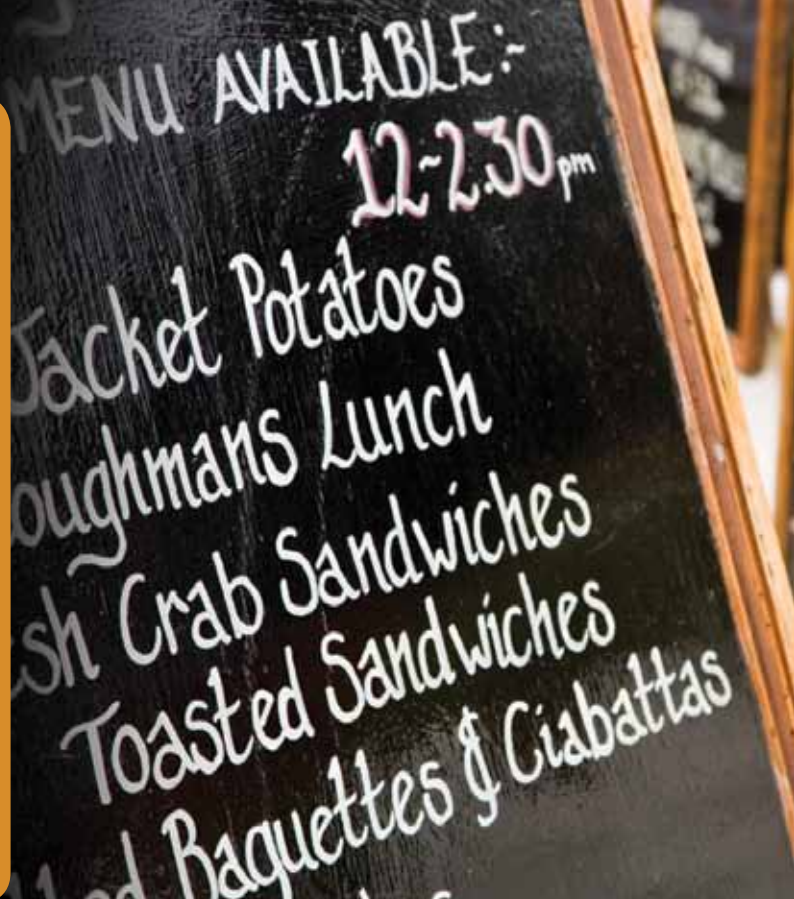 MENU AVAILABLE:-
12-2.30pm
Jacket Potatoes
oughmans Lunch
sh Crab Sandwiches
Toasted Sandwiches
lled Baguettes & Ciabattas